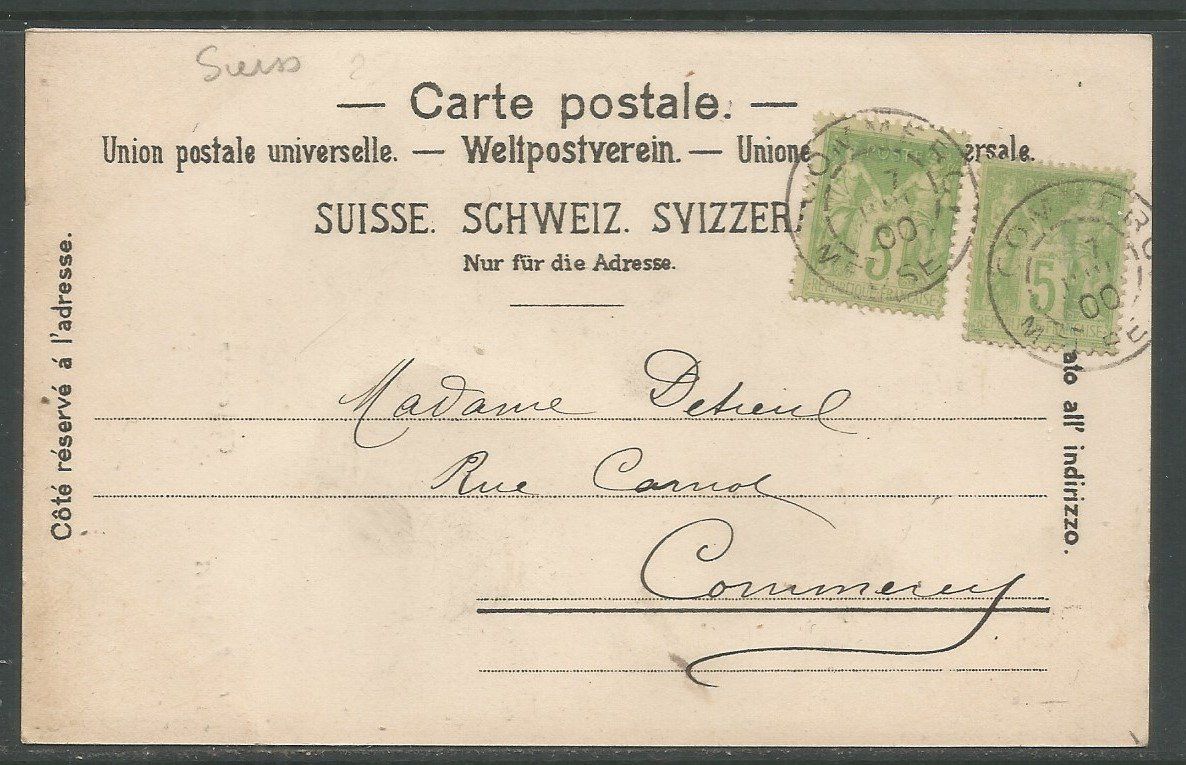 Suiss
— Carte postale. —
Union postale universelle. — Weltpostverein. — Unione ersale.
SUISSE. SCHWEIZ. SVIZZERA
Nur für die Adresse.
Côté réservé á l'adresse.
ato all' indirizzo.
5
RÉPUBLIQUE FRANÇAISE
00
5
00
Madame
Rue Carnot
Commercy